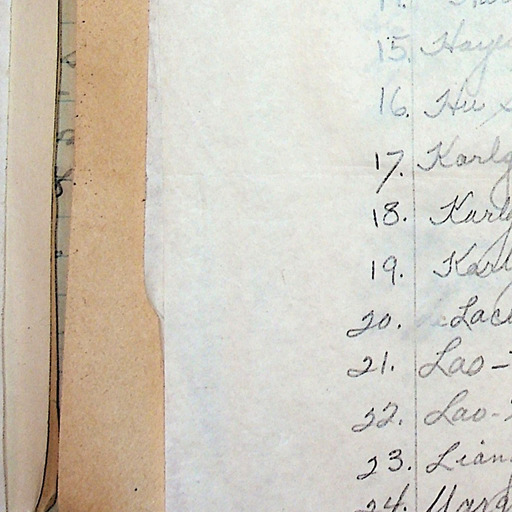 15. Haye
16. Hu
17. Karlg
18. Karlg
19. Karl
20. Lac
21. Lao-
22. Lao-
23. Lian
24.